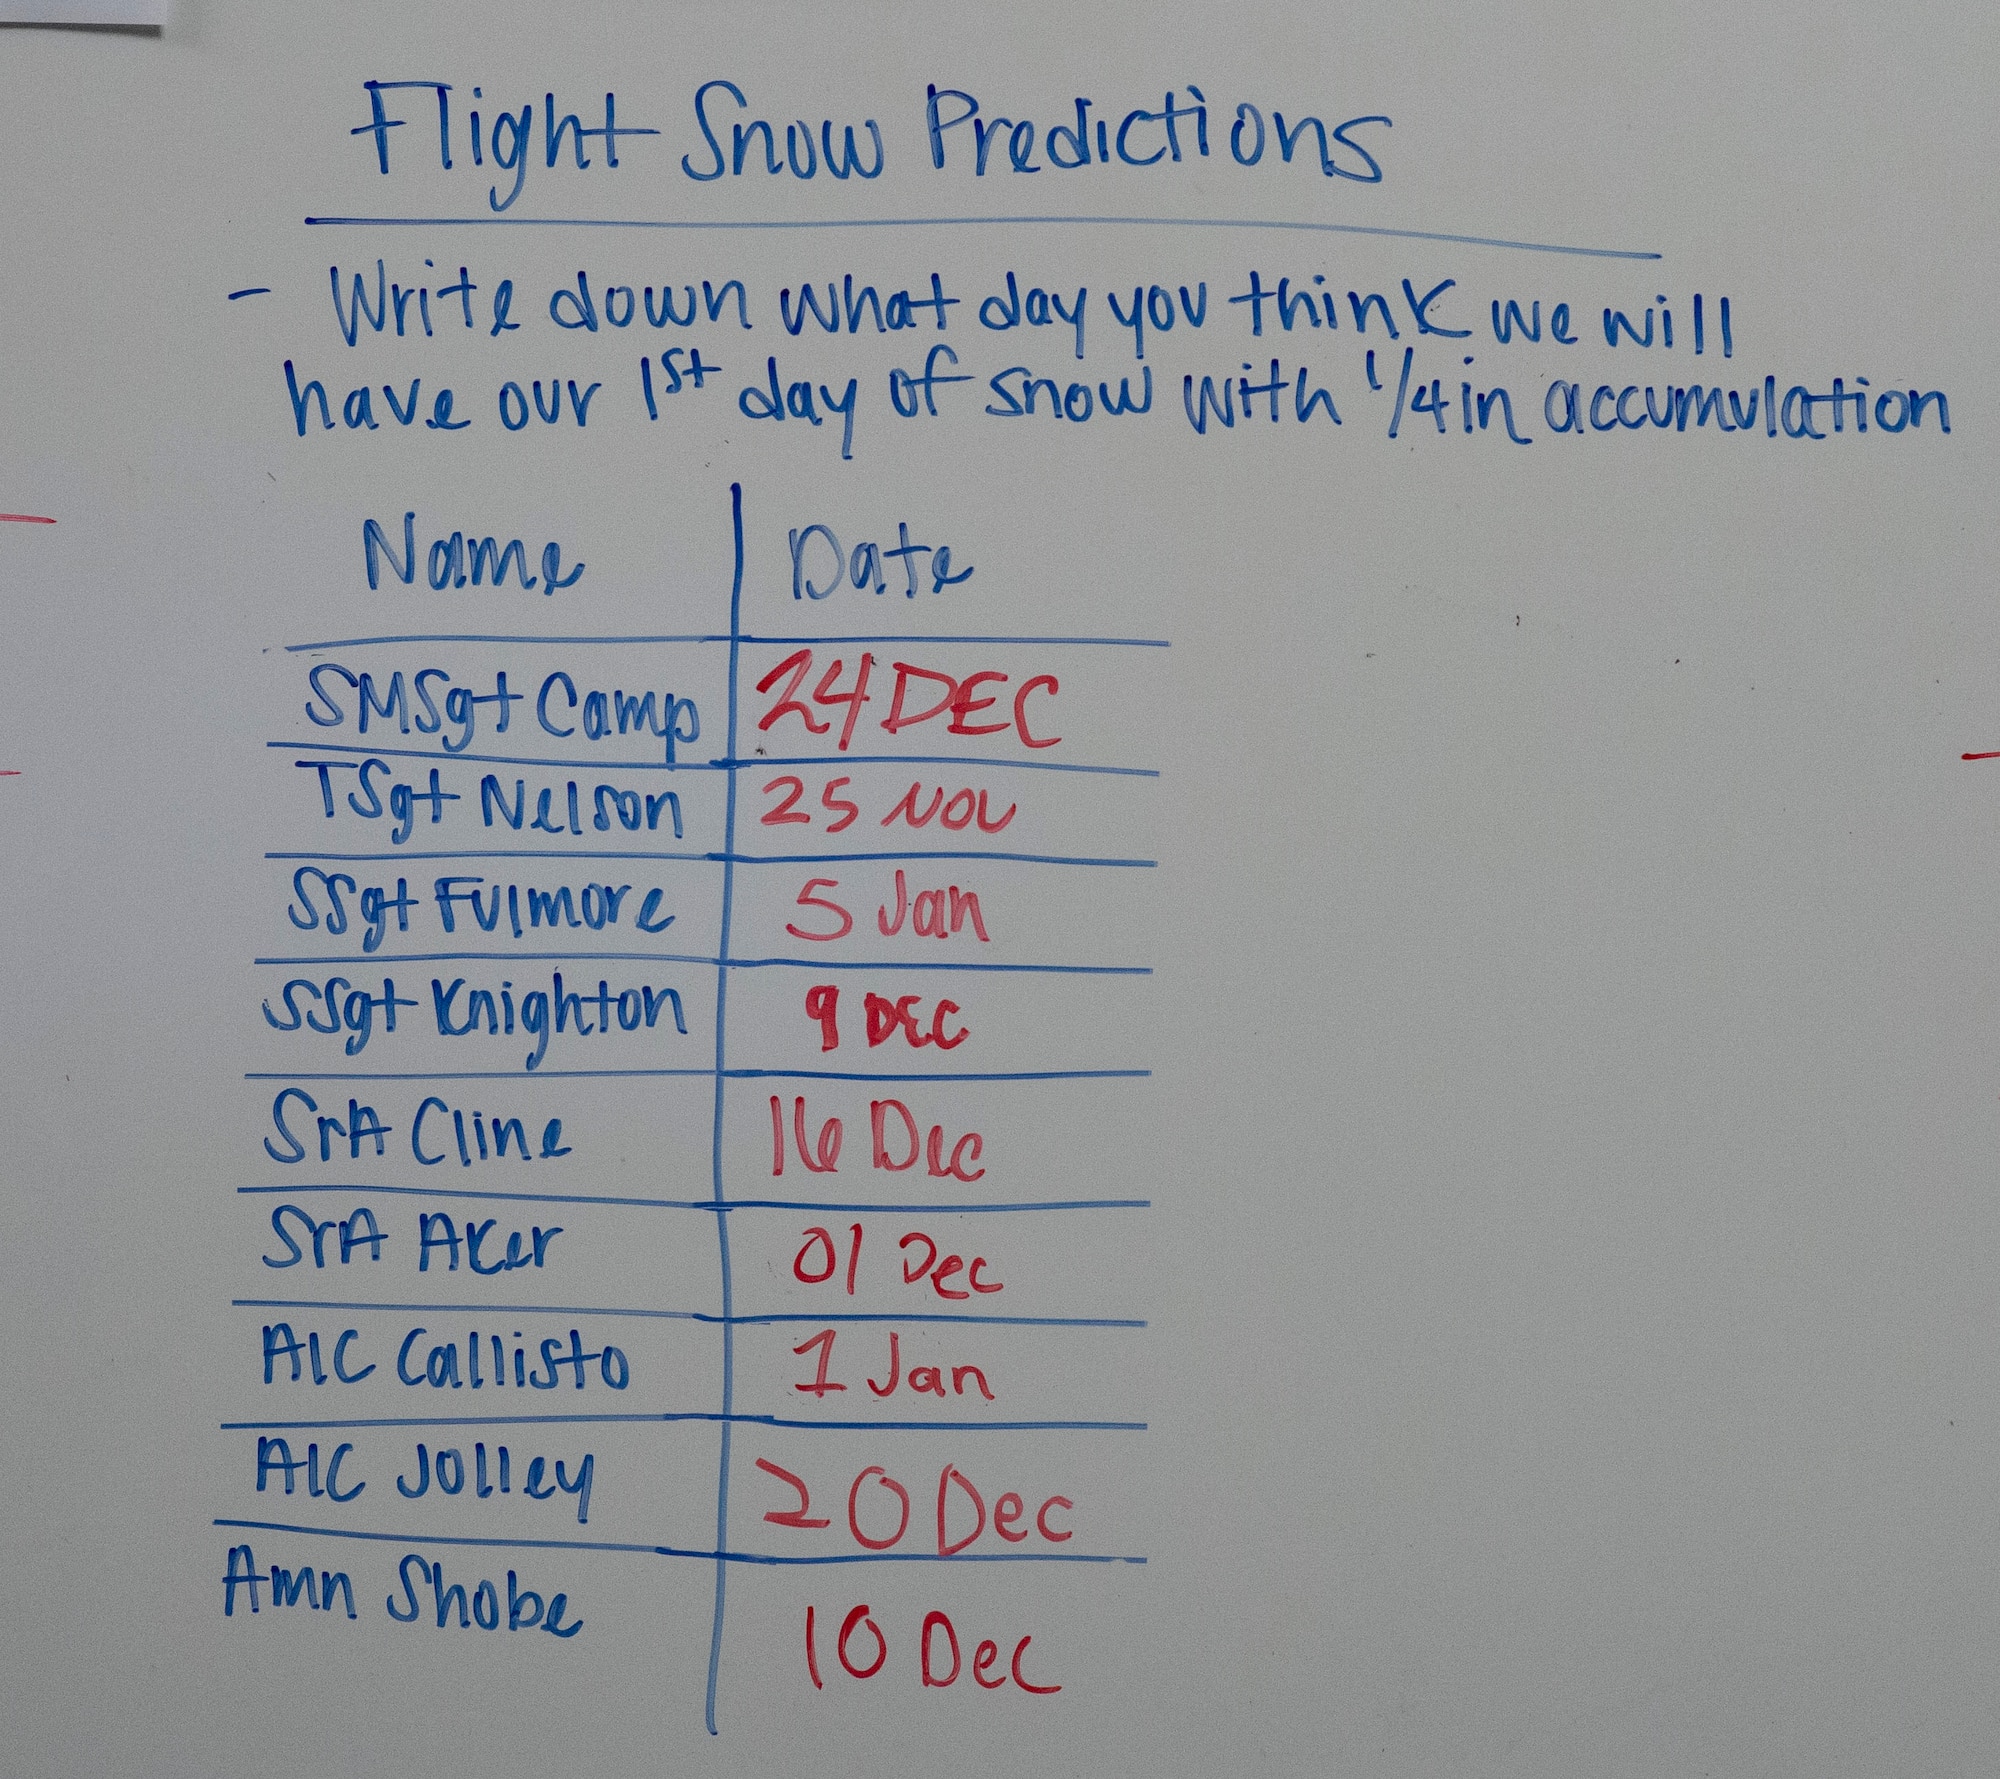 Flight Snow Predictions
- Write down what day you think we will
have our 1st day of snow with 1/4 in accumulation
Name Date
SMSgt Camp 24 DEC
TSgt Nelson 25 NOV
SSgt Fulmore 5 Jan
SSgt Knighton 9 DEC
SrA Cline 16 Dec
SrA Aker 01 Dec
A1C Callisto 1 Jan
A1C Jolley 20 Dec
Amn Shobe 10 Dec